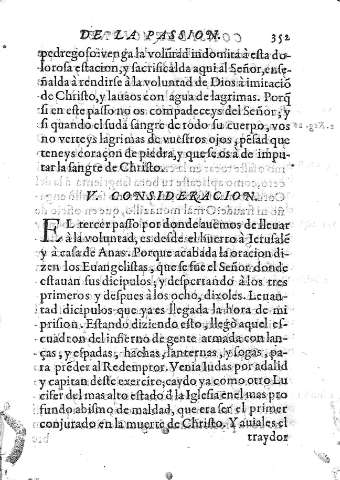 DE LA PASSION. 352
pedregoso venga la volũtad indomita à esta do-
lorosa estacion, y sacrificalda aqui al Señor, ense-
ñalda à rendirse à la voluntad de Dios à imitaciõ
de Christo, y lauaos con agua de lagrimas. Porq̃
si en este passo no os compadeceys del Señor, y
si quando el suda sangre de todo su cuerpo, vos
no verteys lagrimas de vuestros ojos, pẽsad que
teneys coraçon de piedra, y que se os à de impu-
tar la sangre de Christo.
V. CONSIDERACION.
EL tercer passo por donde auemos de lleuar
à la voluntad, es desde el huerto à Ierusalẽ
y à casa de Anas. Porque acabada la oracion di-
zen los Euangelistas, que se fue el Señor donde
estauan sus dicipulos, y despertando à los tres
primeros y despues à los ocho, dixoles. Leuan-
tad dicipulos que ya es llegada la hora de mi
prision. Estando diziendo esto, llegò aquel es-
cuadron del infierno de gente armada con lan-
ças, y espadas, hachas, lanternas, y sogas, pa-
ra prẽder al Redemptor. Venia Iudas por adalid
y capitan deste exercito; caydo ya como otro Lu
cifer del mas alto estado d̃ la Iglesia en el mas pro
fundo abismo de maldad, que era ser el primer
conjurado en la muerte de Christo. Y auiales el
traydor